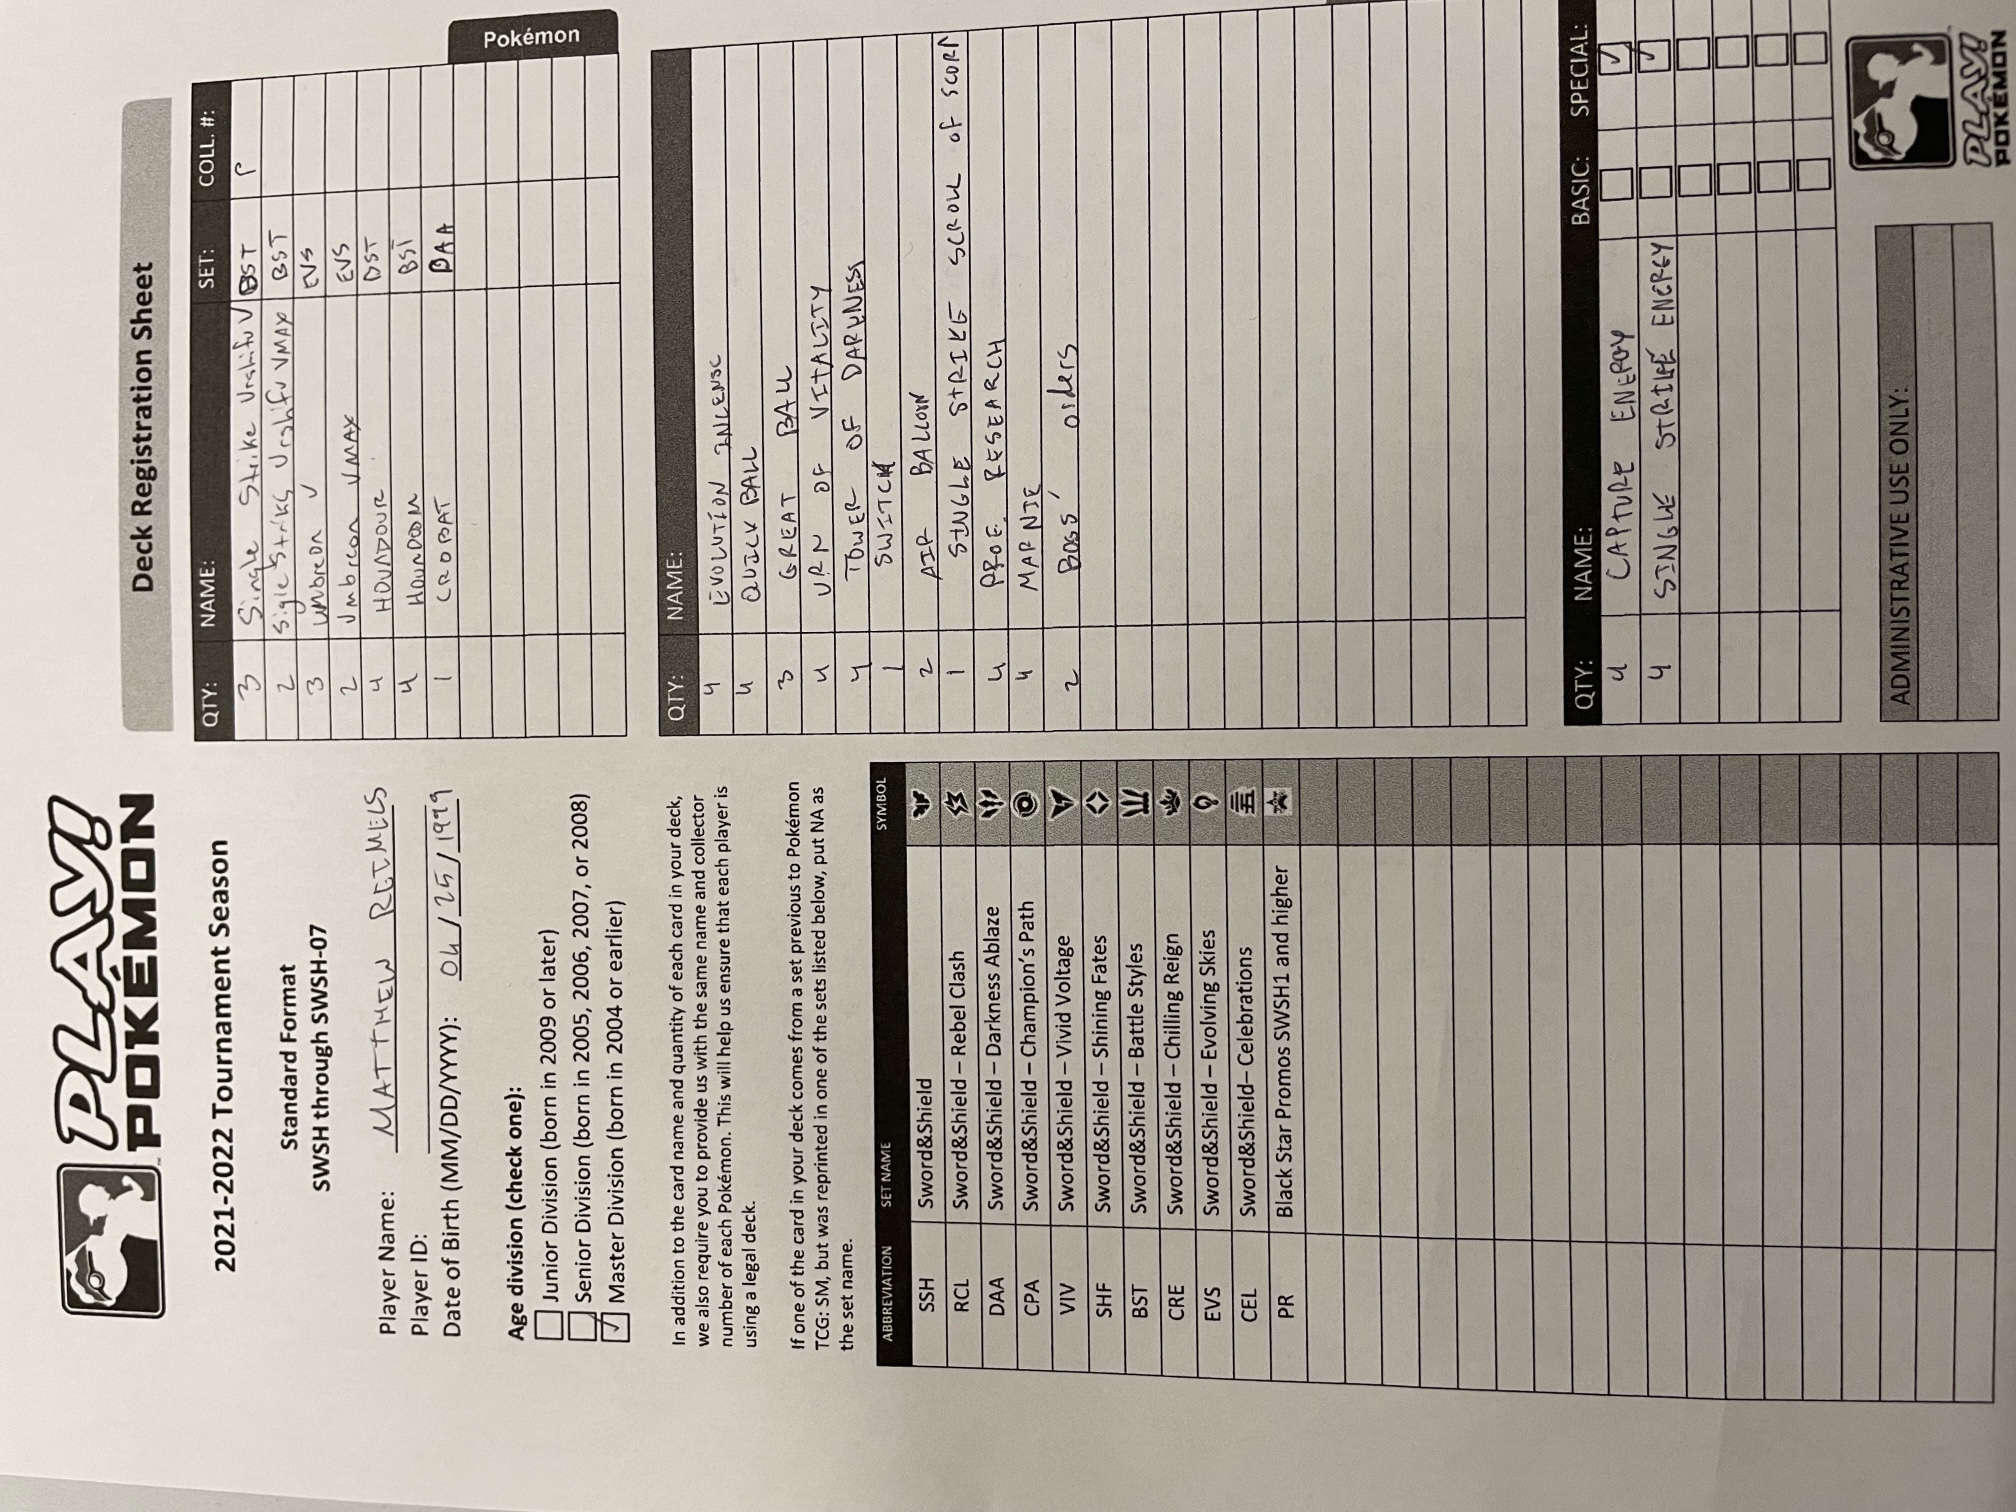 PLAY!
POKÉMON
2021-2022 Tournament Season
Standard Format
SWSH through SWSH-07
Player Name: MATTHEW REIMELS
Player ID:
Date of Birth (MM/DD/YYYY): 04/25/1999
Age division (check one):
Junior Division (born in 2009 or later)
Senior Division (born in 2005, 2006, 2007, or 2008)
✓ Master Division (born in 2004 or earlier)
In addition to the card name and quantity of each card in your deck,
we also require you to provide us with the same name and collector
number of each Pokémon. This will help us ensure that each player is
using a legal deck.
If one of the card in your deck comes from a set previous to Pokémon
TCG: SM, but was reprinted in one of the sets listed below, put NA as
the set name.
ABBREVIATION SET NAME SYMBOL
SSH Sword&Shield
RCL Sword&Shield – Rebel Clash
DAA Sword&Shield – Darkness Ablaze
CPA Sword&Shield – Champion's Path
VIV Sword&Shield – Vivid Voltage
SHF Sword&Shield – Shining Fates
BST Sword&Shield – Battle Styles
CRE Sword&Shield – Chilling Reign
EVS Sword&Shield – Evolving Skies
CEL Sword&Shield– Celebrations
PR Black Star Promos SWSH1 and higher
Deck Registration Sheet
QTY: NAME: SET: COLL. #:
3 Single Strike Urshifu V BST
2 Sigle Strike Urshifu VMAX BST
3 Umbreon V EVS
2 Umbreon VMAX EVS
4 HOUNDOUR BST
4 HOUNDOOM BST
1 CROBAT DAA
Pokémon
QTY: NAME:
4 EVOLUTION INCENSE
4 QUICK BALL
3 GREAT BALL
4 URN OF VITALITY
4 TOWER OF DARKNESS
1 SWITCH
2 AIR BALLOON
1 SINGLE STRIKE SCROLL OF SCORN
4 PROF. RESEARCH
4 MARNIE
2 BOSS' orders
QTY: NAME: BASIC: SPECIAL:
4 CAPTURE ENERGY ✓
4 SINGLE STRIKE ENERGY ✓
ADMINISTRATIVE USE ONLY:
PLAY!
POKÉMON